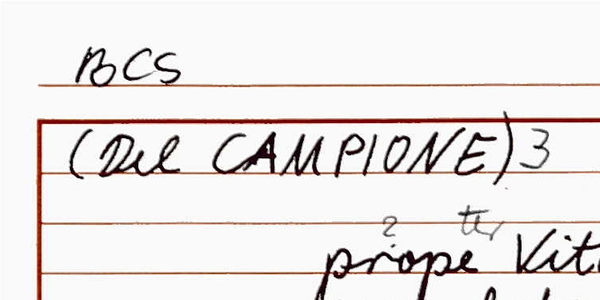 BCS
(Del CAMPIONE) 3
2 ter
prope Vit